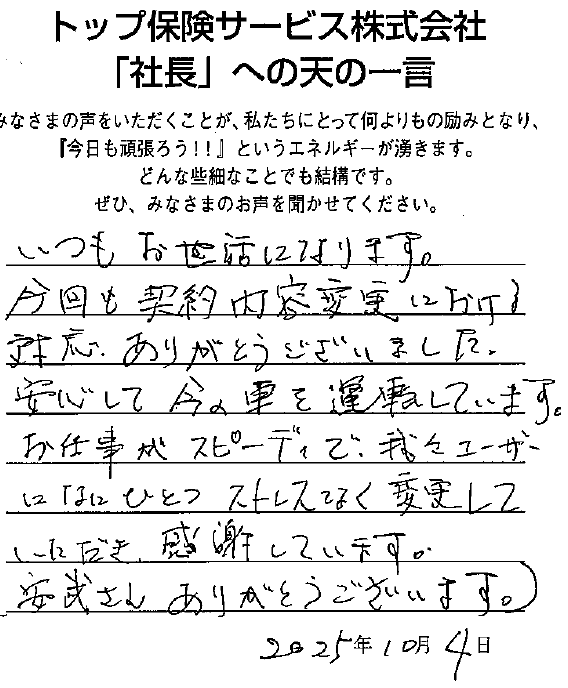 トップ保険サービス株式会社
「社長」への天の一言
みなさまの声をいただくことが、私たちにとって何よりもの励みとなり、
『今日も頑張ろう！！』というエネルギーが湧きます。
どんな些細なことでも結構です。
ぜひ、みなさまのお声を聞かせてください。
いつもお世話になります。
今回も契約内容変更における
対応、ありがとうございました。
安心して今の車を運転しています。
お仕事がスピーディで、我々ユーザー
になにひとつストレスなく変更して
いただき、感謝しています。
安武さんありがとうございます。)
2025年10月4日